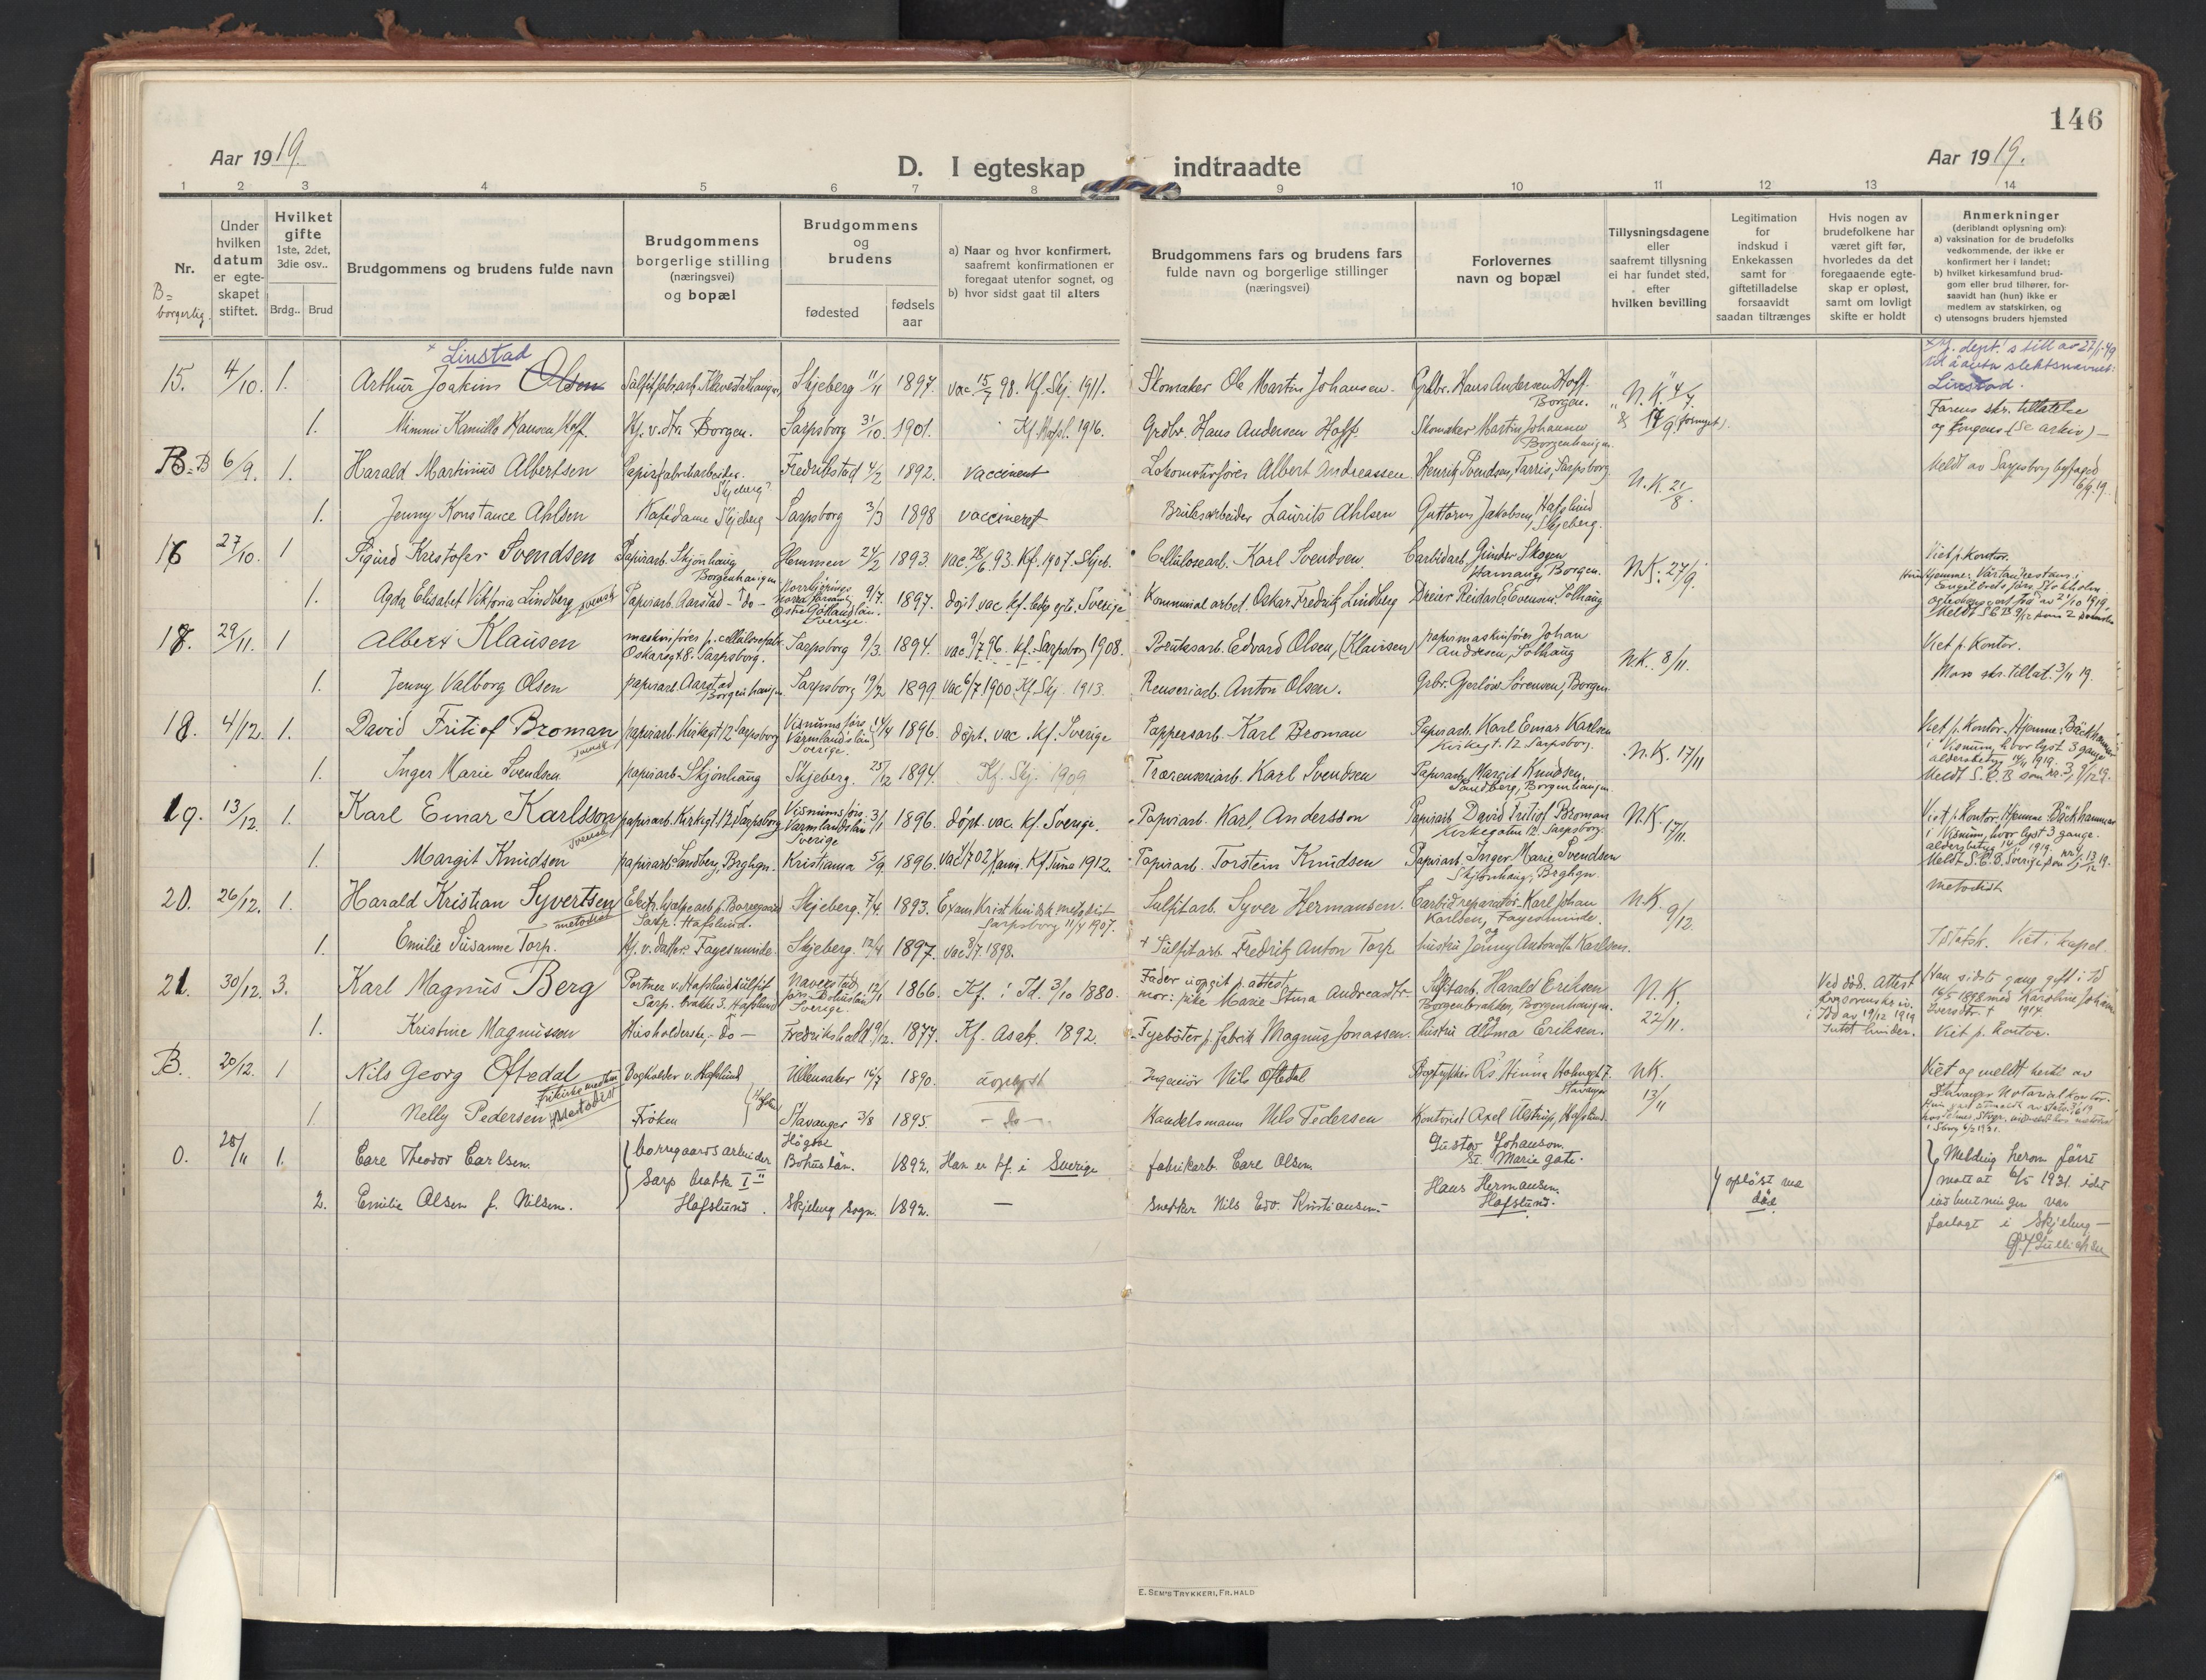 146
Aar 1919.
D. I egteskap indtraadte
Aar 1919.
1 2 3 4 5 6 7 8 9 10 11 12 13 14
Nr.
B = borgerlig.
Under hvilken datum er egteskapet stiftet.
Hvilket gifte 1ste, 2det, 3die osv..
Brdg.. Brud
Brudgommens og brudens fulde navn
Brudgommens borgerlige stilling (næringsvei) og bopæl
Brudgommens og brudens
fødested
fødsels aar
a) Naar og hvor konfirmert, saafremt konfirmationen er foregaat utenfor sognet, og
b) hvor sidst gaat til alters
Brudgommens fars og brudens fars fulde navn og borgerlige stillinger (næringsvei)
Forlovernes navn og bopæl
Tillysningsdagene eller saafremt tillysning ei har fundet sted, efter hvilken bevilling
Legitimation for indskud i Enkekassen samt for giftetilladelse forsaavidt saadan tiltrænges
Hvis nogen av brudefolkene har været gift før, hvorledes da det foregaaende egteskap er opløst, samt om lovligt skifte er holdt
Anmerkninger (deriblandt oplysning om):
a) vaksination for de brudefolks vedkommende, der ikke er konfirmert her i landet;
b) hvilket kirkesamfund brudgom eller brud tilhører, forsaavidt han (hun) ikke er medlem av statskirken, og
c) utensogns bruders hjemsted
× Linstad
15. 4/10. 1. Arthur Joakim Olsen Skjeberg 11/11 1897. vac 15/7 98. Kf. Skj. 1911. Skomaker Ole Martin Johansen. Grbr. Hans Andersen Hoff. Borgen. N.K. 4/7
slektsnavnet: Linstad.
1. Mimmi Kamilla Hansen Hoff. Hj. v. do. Borgen. Sarpsborg 31/10 1901. Kf. Hafsl. 1916. Grdbr. Hans Andersen Hoff. Skomaker Martin Johansen Borgenhaugen. & 17/9 (fornyet). Farens skr. tillatelse og (se arkiv) —
B 6/9. 1. Harald Martinius Albertsen Papirfabrikarbeider. Skjeberg Fredrikstad 4/2 1892. vaccinert Lokomotivfører Albert Andreassen Henrik Svendsen, Tarris, Sarpsborg N.K. 21/8. Meldt av Sarpsborg byfoged 6/9.19.
1. Jenny Konstance Ahlsen Kafedame Skjeberg Sarpsborg 3/3 1898 vaccineret Bruksarbeider Laurits Ahlsen Guttorm Jakobsen, Hafslund Skjeberg.
16 27/10. 1 Sigurd Kristofer Svendsen Papirarb. Skjønhaug Borgenhaugen Hemmen 24/2 1893. vac. 28/6 93. Kf. 1907. Skjeb. Cellulosearb. Karl Svendsen. Carbidarb. Gunder Skogen Hamang, Borgen. N.K. 27/9. Viet p. kontor.
1. Agda Elisabet Viktoria Lindberg svensk Papirarb. Aarstad – do – Östre Götlandslän. Sverige. 9/7. 1897. døpt. vac. kf. Sverige Kommunalarbeid. Oskar Fredrik Lindberg Dreier Reidar E. Evensen. Solhaug
17. 29/11. 1 Albert Klausen maskinfører p. cellulosefabr. Oskarsgt. 8. Sarpsborg. Sarpsborg 9/3. 1894. vac 9/7 96. kf. Sarpsborg 1908. Bruksarb. Edvard Olsen, (Klausen) papirmaskinfører Johan Andresen, Solhaug N.K. 8/11. Viet p. Kontor.
1. Jenny Valborg Olsen papirarb. Aarstad Borgenhaugen Sarpsborg 19/2 1899 vac 6/7 1900. Kf. Skj. 1913. Renseriarb. Anton Olsen. Grbr. Gjerløw Sørensen, Borgen. Mors skr. tillat. 3/11 19.
18. 4/12. 1. David Fritiof Broman svensk papirarb. Kirkegt. 12 Sarpsborg Visnums förs. Värmlandslän Sverige. 14/4 1896. døpt. vac. Kf. Sverige Pappersarb. Karl Broman Papirarb. Karl Einar Karlsen Kirkegt. 12. Sarpsborg. N.K. 17/11 Viet p. Kontor. Hjemme: Bäckhammar i Visnum, hvor lyst 3 gange
1. Inger Marie Svendsen papirarb. Skjønhaug Skjeberg. 25/12 1894. Kf. Skj. 1909 Trærenseriarb. Karl Svendsen Papirarb. Margit Knudsen, Sandberg, Borgenhaugen. aldersbetyg 14/11 1919. Meldt S.C.B. som nr. 3, 9/12 19.
19. 13/12. 1. Karl Einar Karlsson svensk papirarb. Kirkegt. 12, Sarpsborg Visnums förs. Värmlandslän Sverige 3/1 1896. døpt. vac. Kf. Sverige. Papirarb. Karl Andersson Papirarb. David Fritiof Broman Kirkegaten 12. Sarpsborg. N.K. 17/11. Viet p. Kontor. Hjemme: Bäckhammar i Visnum, hvor lyst 3 gange.
1. Margit Knudsen papirarb. Sandberg, Brghgn. Kristiania 5/9. 1896. Kf. Tune 1912. Papirarb. Torstein Knudsen Papirarb. Inger Marie Svendsen Skjønhaug, Brghgn. aldersbetyg 14/11 1919. Meldt S.C.B. Sverige som nr. 4 13/12 19.
20. 26/12. 1. Harald Kristian Syvertsen metodist Elektr. hjælpearb. p. Borregaard Sarp. Hafslund. Skjeberg. 7/4. 1893. Exam. metodist Sarpsborg 11/4 1907. Sulfitarb. Syver Hermansen. Carbidreparatør Karl Johan Karlsen, Fagermunde. og N.K. 9/12. metodist
1. Emilie Susanne Torp. Hj. v. datter. Fagermunde. Skjeberg. 12/4 1897. vac 8/7 1898. † Sulfitarb. Fredrik Anton Torp hustru Jenny Antonette Karlsen. I statsk. Viet i kapel.
21. 30/12. 3. Karl Magnus Berg Portner v. Hafslund sulfit Sarp. brakke 3. Hafslund Naverstad förs. Bohuslän Sverige. 12/1 1866. Kf. i Id. 3/10 1880. Fader uopgit p. attest, mor: pike Marie Stina Andreasdtr. Sulfitarb. Harald Eriksen Borgenbrakken, Borgenhaugen. og N.K. 22/11. Ved død. Attest i Idd av 19/12 1919 Intet hinder. Han sidste gang gift i Id 16/5 1898 med Karoline Johanne Iversdtr. † 1914.
1. Kristine Magnussen Husholderske, – do – Fredrikshald 9/12. 1877. Kf. Asak. 1892. Fyrbøter p. fabrik Magnus Jonassen. hustru Alma Eriksen. Viet p. kontor.
B. 20/12. 1 Nils Georg Oftedal Bogholder v. Hafslund Ullensaker 16/7 1890. uoplyst Ingeniør Nils Oftedal Stavanger N.K. 13/11 Viet og meldt hertil av Stavanger Notarialkontor.
1 Nelly Pedersen Metodist Frøken Stavanger 3/8 1895. – do – Handelsmann Nils Pedersen Kontorist Axel Ulstrup, Hafslund.
O. 28/11 1. Carl Theodor Carlsen. borregaards arbeider Bohus län. 1892. Han er kf. i Sverige fabrikarb. Carl Olsen Gustav Johanson. St. Marie gate. Melding herom først mottat 6/5 1931. idet
2. Emilie Olsen f. Nilsen. Sarp brakke I–II Hafslund. Skjeberg sogn. 1892. — snekker Nils Edv. Kristiansen. Hans Hermansen. Hafslund. opløst ved død. indberetningen var forlagt i Skjeberg –
E. SEM'S TRYKKERI, FR.HALD